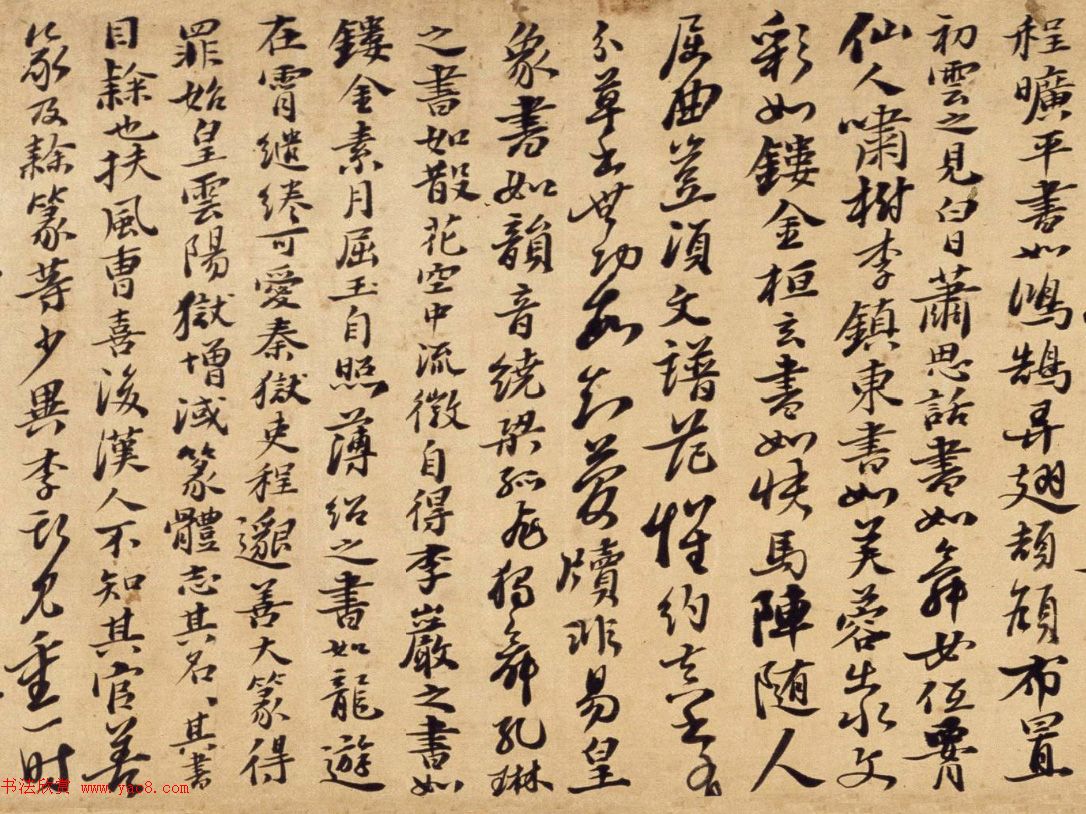 程曠平書如鴻鵠弄翅頡頏布置
初雲之見白日蕭思話書如舞女低腰
仙人嘯樹李鎮東書如芙蓉出水文
彩如鏤金桓玄書如快馬陣随人
屈曲豈須文譜范惟約真書有
分草書無功故知簡牘非易皇
象書如韻音繞梁孤飛獨舞孔琳
之書如散花空中流徵自得李巖之書如
鏤金素月屈玉自照薄紹之書如龍遊
在霄繾綣可愛秦獄吏程邈善大篆得
罪始皇雲陽獄增減篆體志其名、其書
目隸也扶風曹喜後漢人不知其官善
篆及隸篆等少異李斯見重一時
书法欣赏 www.yac8.com